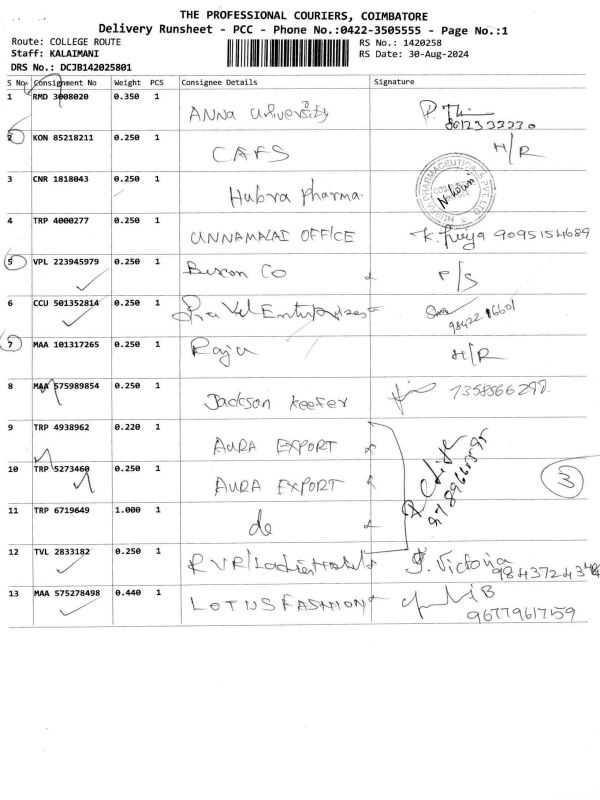 THE PROFESSIONAL COURIERS, COIMBATORE
Delivery Runsheet - PCC - Phone No.:0422-3505555 - Page No.:1
Route: COLLEGE ROUTE RS No.: 1420258
Staff: KALAIMANI RS Date: 30-Aug-2024
DRS No.: DCJB142025801
S No Consignment No Weight PCS Consignee Details Signature
1 RMD 3008020 0.350 1 ANNA University
2 KON 85218211 0.250 1 CAFS H/R
3 CNR 1818043 0.250 1 Hubra Pharma.
4 TRP 4000277 0.250 1 UNNAMALAI OFFICE K. Priya 9095154689
5 VPL 223945979 0.250 1 Bexon Co P/S
6 CCU 501352814 0.250 1 Enterprises 98422 16601
7 MAA 101317265 0.250 1 Raju H/R
8 MAA 575989854 0.250 1 Jackson Keefer 7358566297
9 TRP 4938962 0.220 1 AURA EXPORT
10 TRP 5273460 0.250 1 AURA EXPORT
3
11 TRP 6719649 1.000 1 do
12 TVL 2833182 0.250 1 RVR Ladies Hostel J. Victoria
13 MAA 575278498 0.440 1 LOTUS FASHION 9677961759